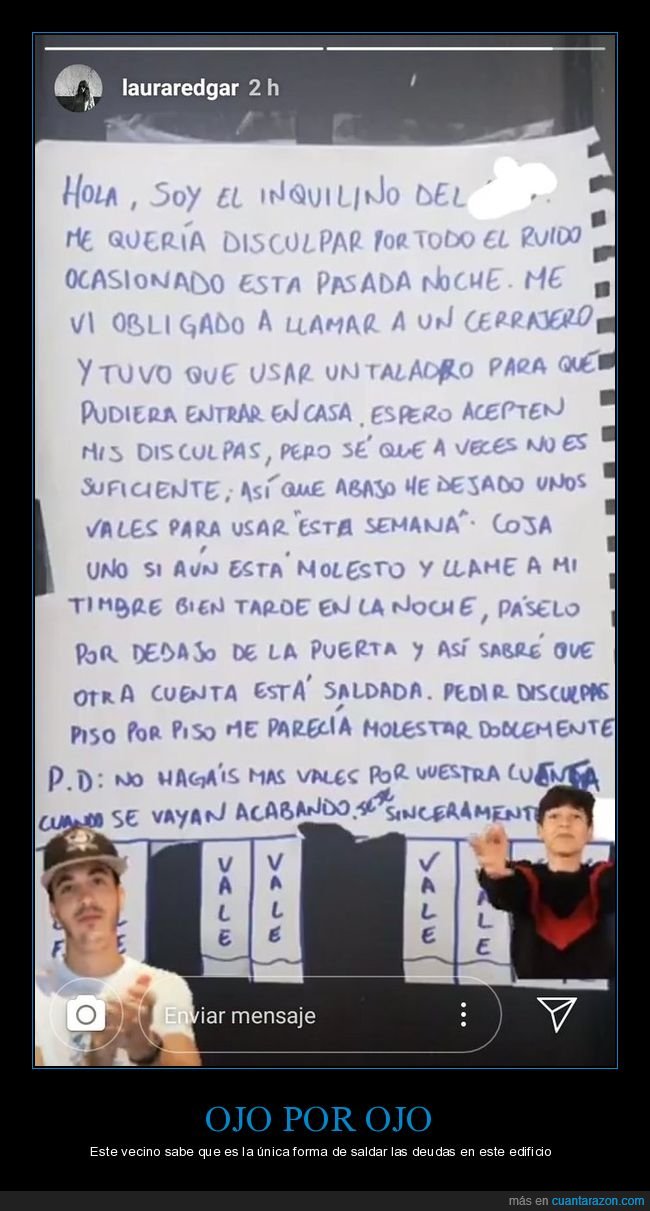 lauraredgar 2 h
HOLA, SOY EL INQUILINO DEL
ME QUERÍA DISCULPAR POR TODO EL RUIDO
OCASIONADO ESTA PASADA NOCHE. ME
VI OBLIGADO A LLAMAR A UN CERRAJERO
Y TUVO QUE USAR UN TALADRO PARA QUE
PUDIERA ENTRAR EN CASA. ESPERO ACEPTEN
MIS DISCULPAS, PERO SÉ QUE A VECES NO ES
SUFICIENTE; ASÍ QUE ABAJO HE DEJADO UNOS
VALES PARA USAR "ESTA SEMANA". COJA
UNO SI AÚN ESTÁ MOLESTO Y LLAME A MI
TIMBRE BIEN TARDE EN LA NOCHE, PÁSELO
POR DEBAJO DE LA PUERTA Y ASÍ SABRÉ QUE
OTRA CUENTA ESTÁ SALDADA. PEDIR DISCULPAS
PISO POR PISO ME PARECÍA MOLESTAR DOBLEMENTE
P.D: NO HAGÁIS MAS VALES POR VUESTRA CUENTA
CUANDO SE VAYAN ACABANDO. SINCERAMENTE
VALE
VALE
VALE
VALE
Enviar mensaje
OJO POR OJO
Este vecino sabe que es la única forma de saldar las deudas en este edificio
más en cuantarazon.com